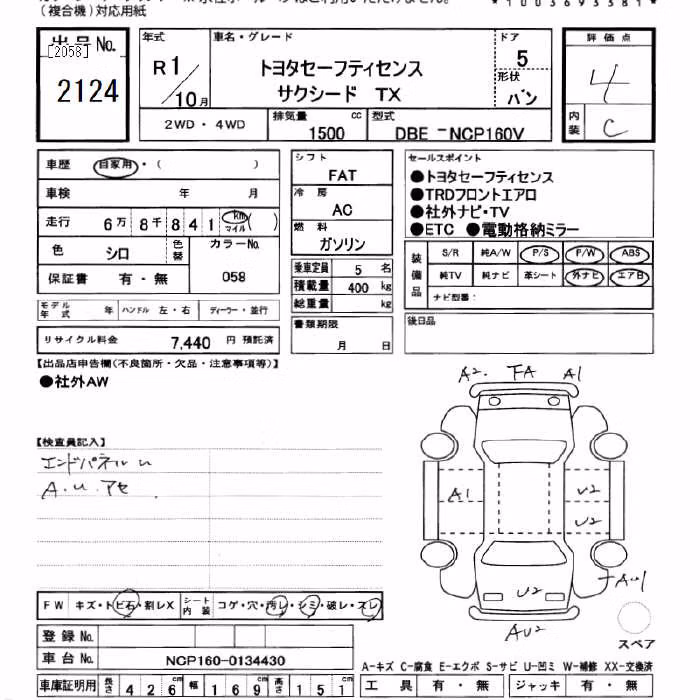 (複合機)対応用紙
*1003693381*
出品No.
[2058]
2124
年式
R1/10月
車名・グレード
トヨタセーフティセンス
サクシード TX
ドア
5
形状
バン
評価点
4
内装
C
2WD・4WD
排気量
1500
cc
型式
DBE-NCP160V
車歴
自家用・( )
車検 年 月
走行 6万8千841 km マイル ( )
色 シロ
色替
カラーNo.
058
保証書 有・無
シフト
FAT
冷房
AC
燃料
ガソリン
乗車定員 5 名
積載量 400 kg
総重量 kg
書類期限
月 日
セールスポイント
●トヨタセーフティセンス
●TRDフロントエアロ
●社外ナビ・TV
●ETC ●電動格納ミラー
装備品
S/R 純A/W P/S P/W ABS
純TV 純ナビ 革シート 外ナビ エアB
ナビ型番：
後日品
モデル年式 年
ハンドル 左・右
ディーラー・並行
リサイクル料金 7,440 円 預託済
【出品店申告欄(不良箇所・欠品・注意事項等)】
●社外AW
【検査員記入】
エンドパネルU
A.U.アセ
A2 FA A1
A1
U2
U2
U2
AU1
AU2
スペア
FW キズ・トビ石・割レX
シート内装 コゲ・穴・汚レ・シミ・破レ・スレ
登録No.
車台No. NCP160-0134430
車庫証明用 長さ 426 cm 幅 169 cm 高さ 151 cm
A-キズ C-腐食 E-エクボ S-サビ U-凹ミ W-補修 XX-交換済
工具 有・無 ジャッキ 有・無